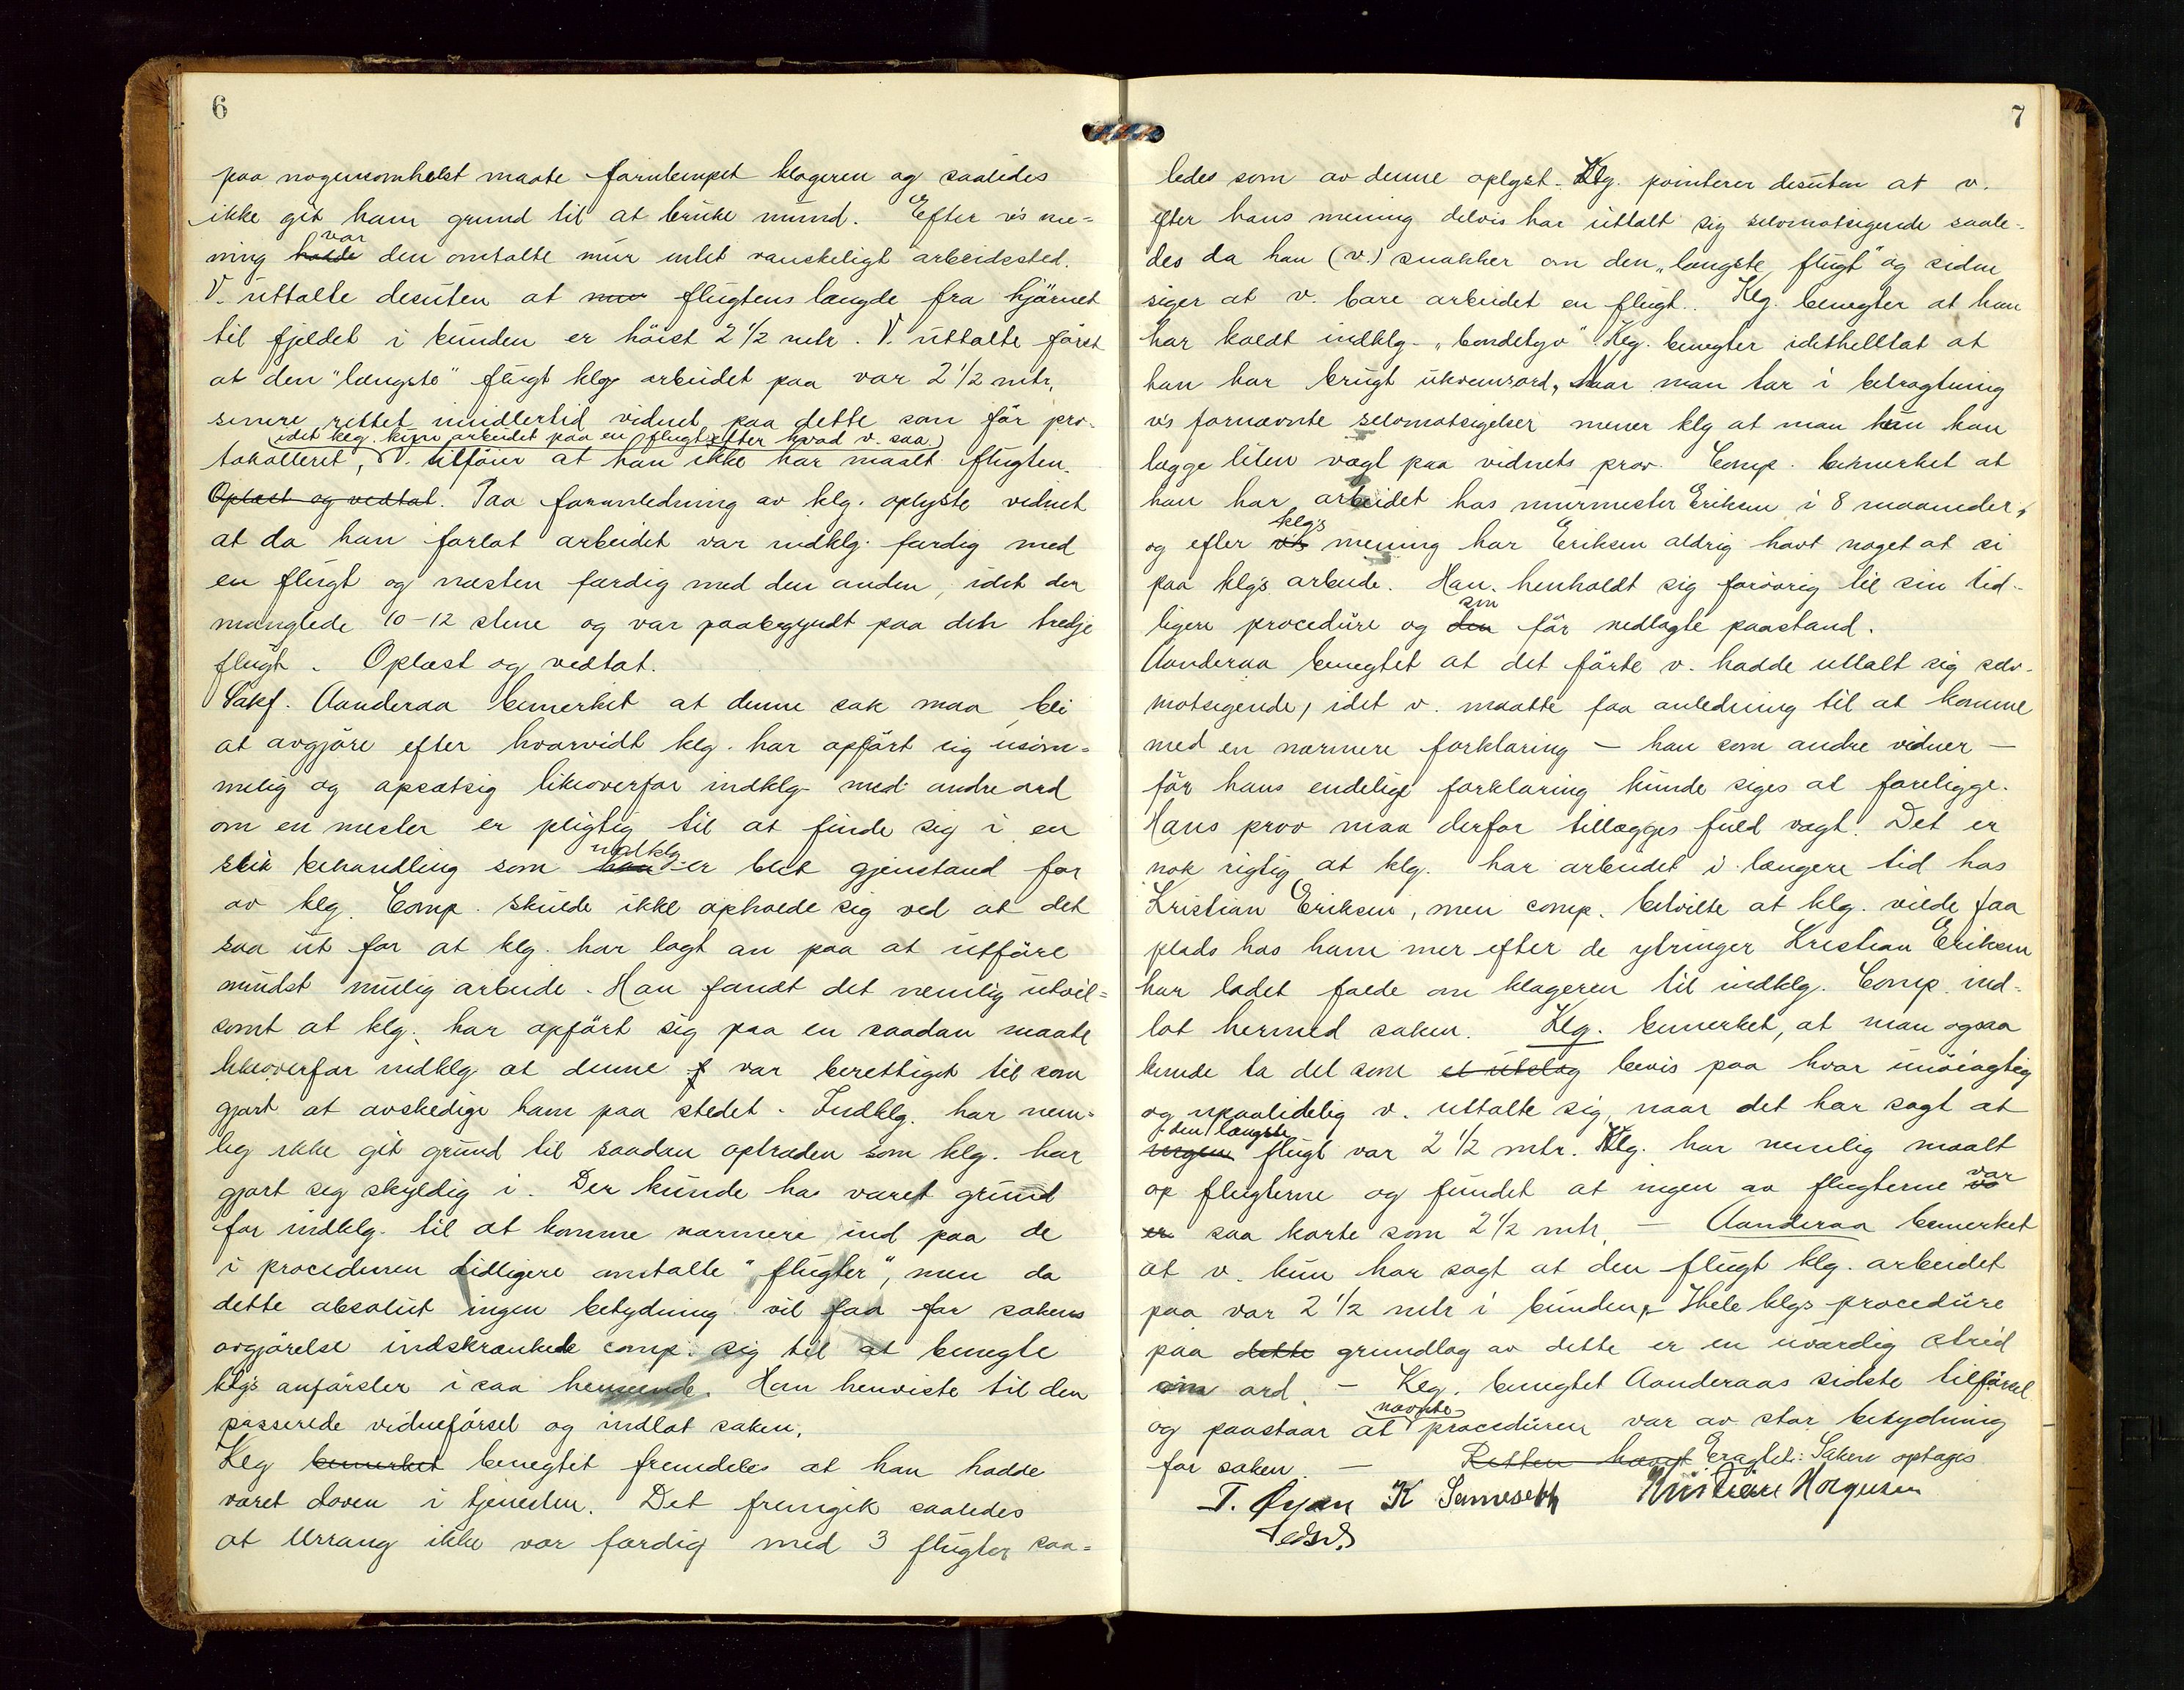 6
paa nogensomhelst maate fornempet klageren og saaledes
ikke git ham grund til at bruke mund. Efter v's me=
ning hadde var den omtalte mur intet vanskeligt arbeidssted.
V. uttalte desuten at mur flugtens længde fra hjørnet
til fjeldet i bunden er høist 2 1/2 mtr. V. uttalte først
at den "længste" flugt klg arbeidet paa var 2 1/2 mtr,
senere rettet imidlertid vidnet paa dette som før pro-
(idet klg. kun arbeidet paa en flugt efter hvad v. saa.)
tokolleret, V. tilføier at han ikke har maalt flugten.
Oplæst og vedtat. Paa foranledning av klg. oplyste vidnet
at da han forlot arbeidet var indklg. færdig med
en flugt og næsten færdig med den anden, idet der
manglede 10-12 stene og var paabegyndt paa den tredje
flugt. Oplæst og vedtat.
Sakf. Aanderaa bemerket at denne sak maa bli
at avgjøre efter hvorvidt klg. har opført sig usøm=
melig og opsætsig likeoverfor indklg med andre ord
om en mester er pligtig til at finde sig i en
slik behandling som han indklg er blit gjenstand for
av klg. Comp. skulde ikke opholde sig ved at det
saa ut for at klg. har lagt an paa at utføre
mindst mulig arbeide. Han fandt det nemlig utvil=
somt at klg. har opført sig paa en saadan maate
likeoverfor indklg at denne f var berettiget til som
gjort at avskedige ham paa stedet. Indklg. har nem=
lig ikke git grund til saadan optræden som klg. har
gjort seg skyldig i. Der kunde ha været grund
for indklg. til at komme nærmere ind paa de
i proceduren tidligere omtalte "flugter", men da
dette absolut ingen betydning vil faa for sakens
avgjørelse indskrænkede comp. sig til at benegte
klg's anførsler i saa henseende. Han henviste til den
passerede vidneførsel og indlot saken.
Klg bemerket benegtet fremdeles at han hadde
været doven i tjenesten. Det fremgik saaledes
at Urrang ikke var færdig med 3 flugter saa=
7
ledes som av denne oplyst. Klg. pointerer desuten at v.
efter hans mening delvis har uttalt sig selvmotsigende saale=
des da han (v.) snakker om den "længste flugt" og siden
siger at v. bare arbeidet en flugt.. Klg. benegter at han
har kaldt indklg. "bondetyv" Klg. benegter idethelltat at
han har brugt ukvemsord, Naar man tar i betragtning
v's fornævnte selvmotsigelser mener klg at man kun kan
lægge liten vægt paa vidnets prov. Comp. bemerket at
han har arbeidet hos murmester Eriksen i 8 maaneder,
og efter v's klg's mening har Eriksen aldrig havt noget at si
paa klg's arbeide. Han henholdt sig forøvrig til sin tid-
ligere procedüre og den sin før nedlagte paastand.
Aanderaa benegtet at det førte v. hadde uttalt sig selv-
motsigende, idet v. maatte faa anledning til at komme
med en nærmere forklaring – han som andre vidner –
før hans endelige forklaring kunde siges at foreligge.
Hans prov maa derfor tillægges fuld vægt. Det er
nok rigtig at klg. har arbeidet i længere tid hos
Kristian Eriksen, men comp. betvilte at klg. vilde faa
plads hos ham mer efter de ytringer Kristian Eriksen
har ladet falde om klageren til indklg. Comp. ind-
lot hermed saken. Klg. bemerket, at man ogsaa
kunde ta det som et utslag bevis paa hvor unøiagtig
og upaalidelig v. uttalte sig, naar det har sagt at
ingen den længste flugt var 2 1/2 mtr. Klg. har nemlig maalt
op flugterne og fundet at ingen av flugterne var
er saa korte som 2 1/2 mtr. – Aanderaa bemerket
at v. kun har sagt at den flugt klg. arbeidet
paa var 2 1/2 mtr i bunden, – Hele klgs procedüre
paa dette grundlag av dette er en uværdig strid
om ord. – Klg. benegtet Aanderaas sidste tilførsel
og paastaar at nævnte procedüren var av stor betydning
for saken. – Retten hævet Eragtet: Saken optages
T. Øyen K Samseth Kristian Horgusen